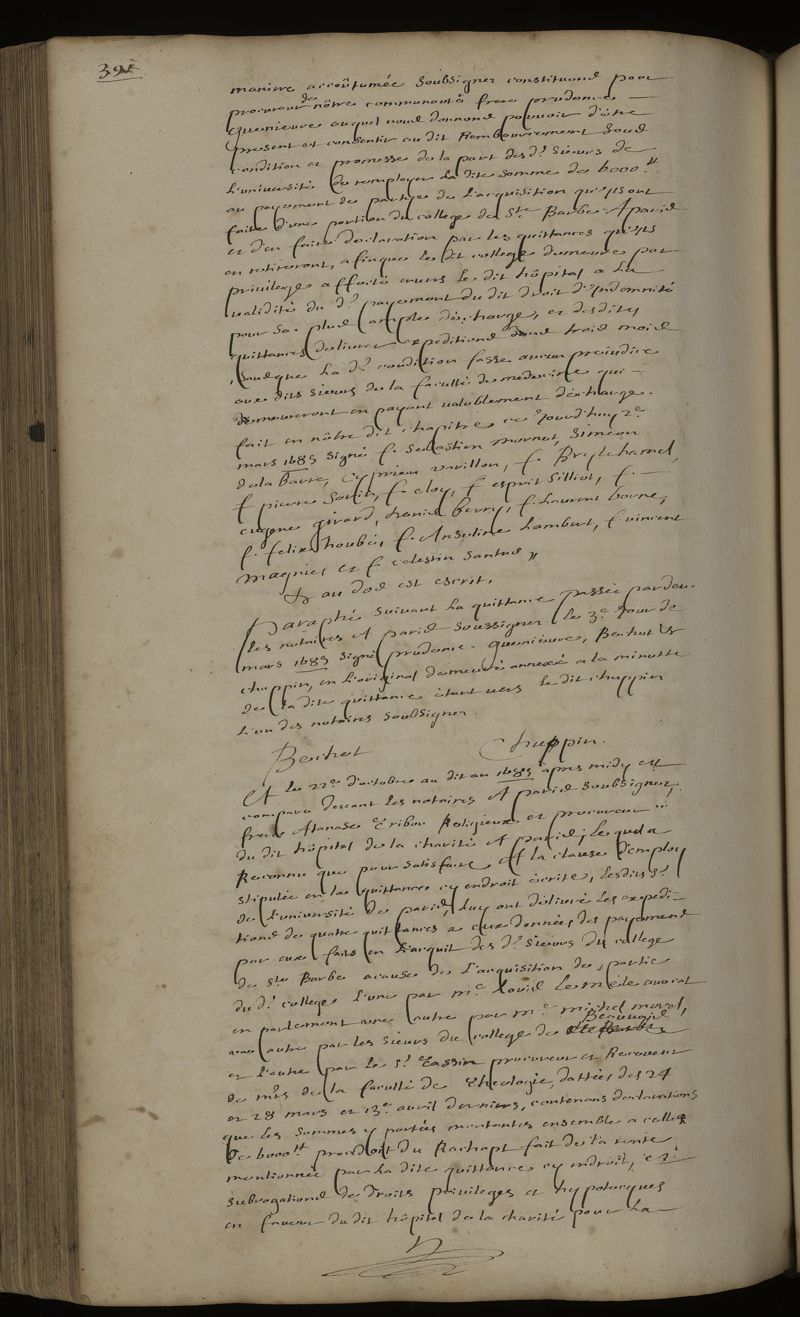 391
maniere accoûtumée soubsignez constituons pour
procureur de nôtre communauté frere prudence
Quenieure auquel nous donnons pouvoir d'être
present et consentir au dit Remboursement sous
condition et promesse de la part des d.ᵗ sieurs de
L'université de remployer La dite somme de 6000.ᵗᵗ
au payement de partye de L'acquisition qu'ils ont
faite d'une portion du college de Sᵗᵉ Barbe A paris
et d'en faire declaration par les quittances qu'ils
en retireront, afin que le dit college demeure par
privilege affecté envers le dit hôpital a La
validité du d.ᵗ payement du dit droit d'Indemnité
pour sa plus ample décharge, et desdites
quittances delivrer expeditions dans trois mois
, sans que La d.ᵗ condition fasse aucun prejudice
aux dits sieurs de la faculté de medecine qui
demeureront en payant valablement déchargez.
fait en nôtre dit chapitre ce Jourd'huy 2ᵉ
mars 1683 signé f. Sebastien mornet, Simeon
dela Barre, Cyprien varillon, f.
f pierre Savin, f. eloy, f esprit Silliot, f.
eugene girard, herry, f Laurent borne,
f. felix houbé, f. Anseline Lambert, f vincent
magnier et f celestin Santus //
Et au dos est escrit.
Paraphé suivant La quittance passée pardev.
Les notaires A paris soussignez le 3ᵉ Jour de
mars 1683 signé prudence Quenieure, Bechet &
chuppin, en L'original demeuré annexé a la minutte
de La dite quittance étant vers le dit chuppin
L'un des notaires soubsignez.
Bechet Chuppin.
Et le 22ᵉ d'octobre au dit an 1683 apres midy est
comparu devant Les notaires A paris soubsignez,
frere Atanase Eribou Religieux et procureur
du dit hôpital de la charité A paris, Lequel a
Reconnu que pour satisfaire A la clause d'employ
stipulée en la quittance cy endroit écrite, lesdits sʳˢ
de L'université de paris, Luy ont délivré Les expedi-
tions de quatre quittances a eux données des payemens
par eux faits en L'acquit des d.ᵗ sieurs du college
de Sᵗᵉ Barbe acause de L'acquisition de partie
du d.ᵗ college L'une par mᵉ Louis Lemêle avocat
en parlement une autre par mᵉ michel morel,
une autre par les sieurs du college de Beauvais
et L'autre par le sʳ Cassin procureur et Receveur
de mʳˢ de la faculté de Theologie, dattées des 24
et 28 mars et 13ᵉ avril derniers, contenans declarations
que les sommes y portées montantes ensemble a celle
de 6000ᵗᵗ provenoit du Rachapt fait de la rente
mentionnée par La dite quittance cy endroit, et
subrogations de droits privileges et hypoteques
en faveur du dit hôpital de la charité pour La